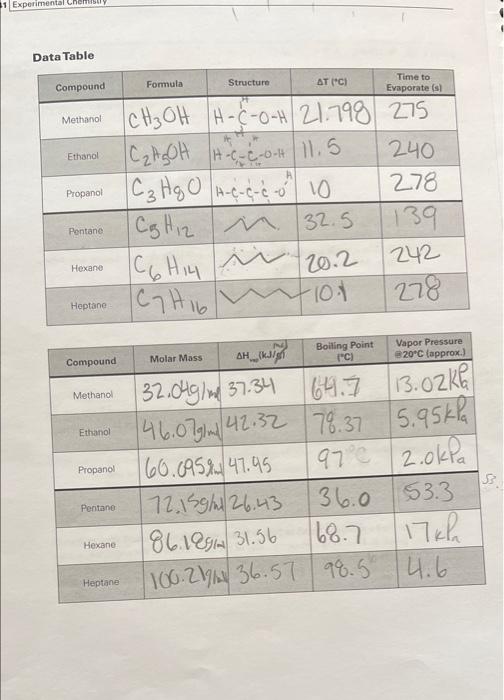 1 Experimental Chemistry
Data Table
Compound Formula Structure ΔT (°C) Time to Evaporate (s)
Methanol CH3OH H-C-O-H 21.798 275
Ethanol C2H5OH H-C-C-O-H 11.5 240
Propanol C3H8O H-C-C-C-O H 10 278
Pentane C5H12 32.5 139
Hexane C6H14 20.2 242
Heptane C7H16 10.1 278
Compound Molar Mass ΔH (kJ/ Boiling Point (°C) Vapor Pressure @20°C (approx.)
Methanol 32.04g/m 37.34 64.7 13.02kPa
Ethanol 46.07g/m 42.32 78.37 5.95kPa
Propanol 60.095g 47.45 97°C 2.0kPa
Pentane 72.15g/m 26.43 36.0 53.3
Hexane 86.18g/m 31.56 68.7 17kPa
Heptane 100.21g/m 36.57 98.5 4.6